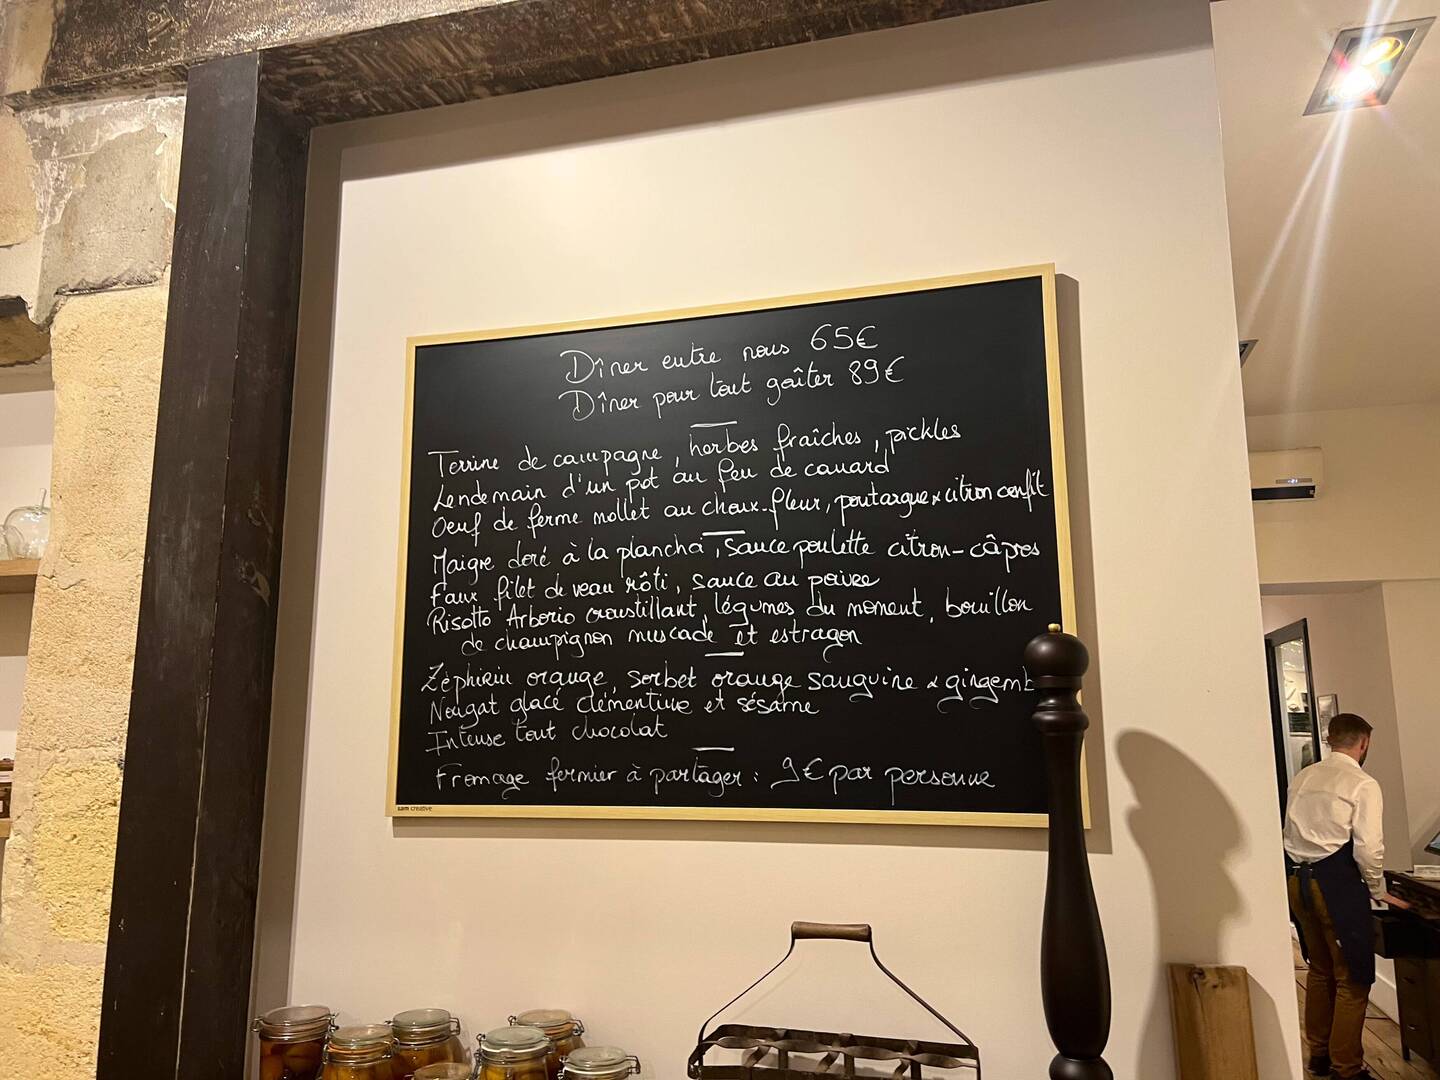 Dîner entre nous 65€
Dîner pour tout goûter 89€
Terrine de campagne, herbes fraîches, pickles
Lendemain d'un pot au feu de canard
Oeuf de ferme mollet au choux-fleur, poutargue x citron confit
Maigre doré à la plancha, sauce poulette citron-câpres
Faux filet de veau rôti, sauce au poivre
Risotto Arborio croustillant, légumes du moment, bouillon
de champignon muscade et estragon
Zéphirin orange, sorbet orange sanguine &
Nougat glacé clémentine et sésame
Intense tout chocolat
Fromage fermier à partager : 9€ par personne
sam creative